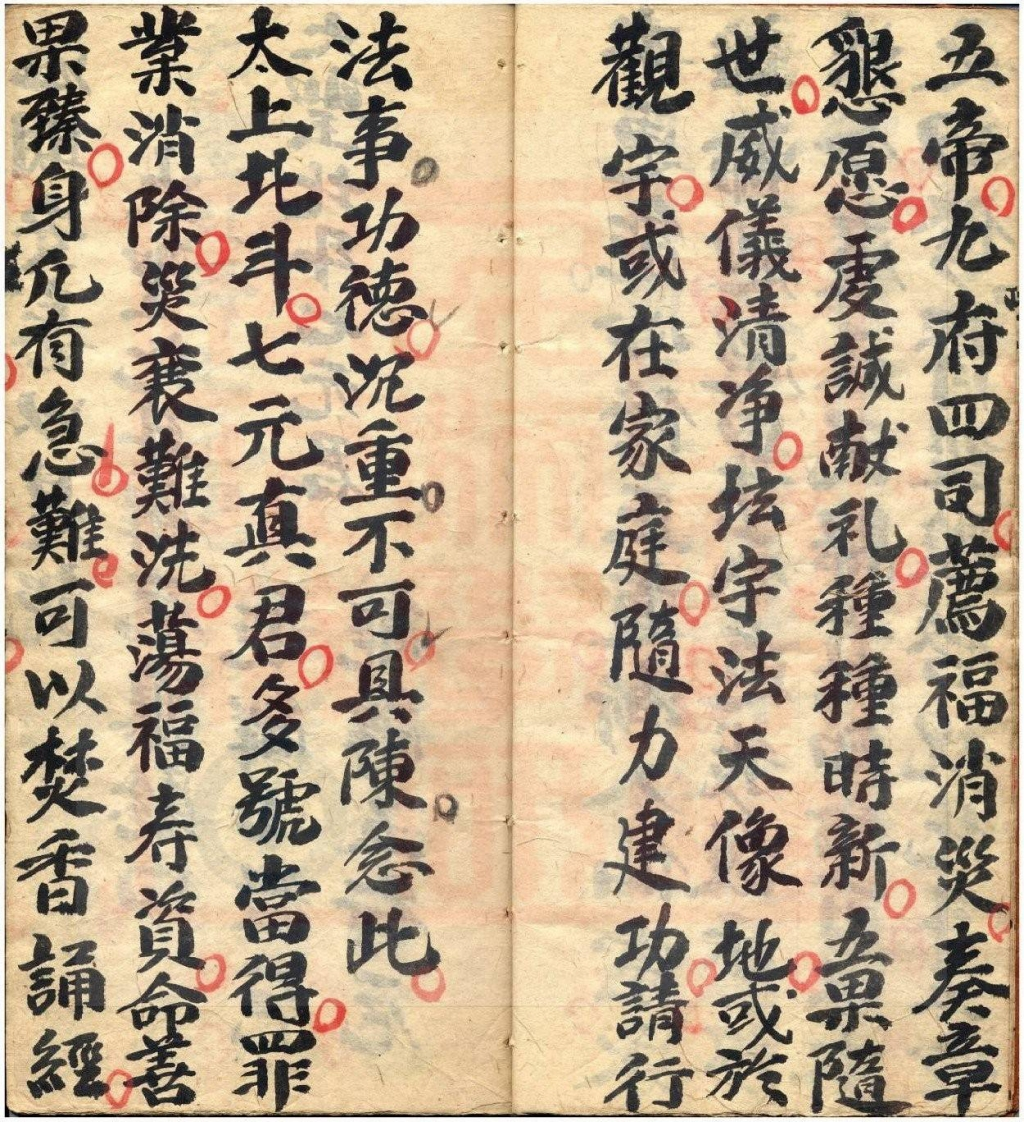 五帝九府四司薦福消災奏章
懇愿虔誠献礼種種時新五果隨
世威儀清净坛宇法天像地或於
觀宇或在家庭隨力建功請行
法事功德沉重不可具陳念此
太上北斗七元真君名號當得罪
業消除災衰難洗蕩福寿資命善
果臻身凢有急難可以焚香誦經